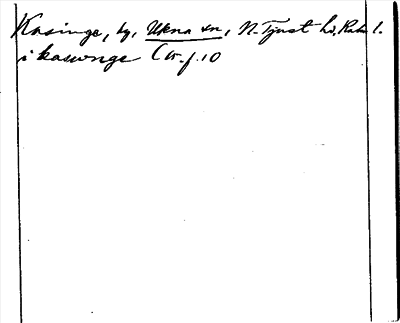 Kasinge, by, Ukna sn, N. Tjust hd, Kalm l.
i kasunge